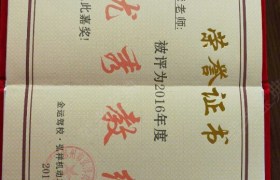 荣誉证书
老师:
被评为2016年度
优秀教练
此嘉奖!
金运驾校·弘祥机动
201